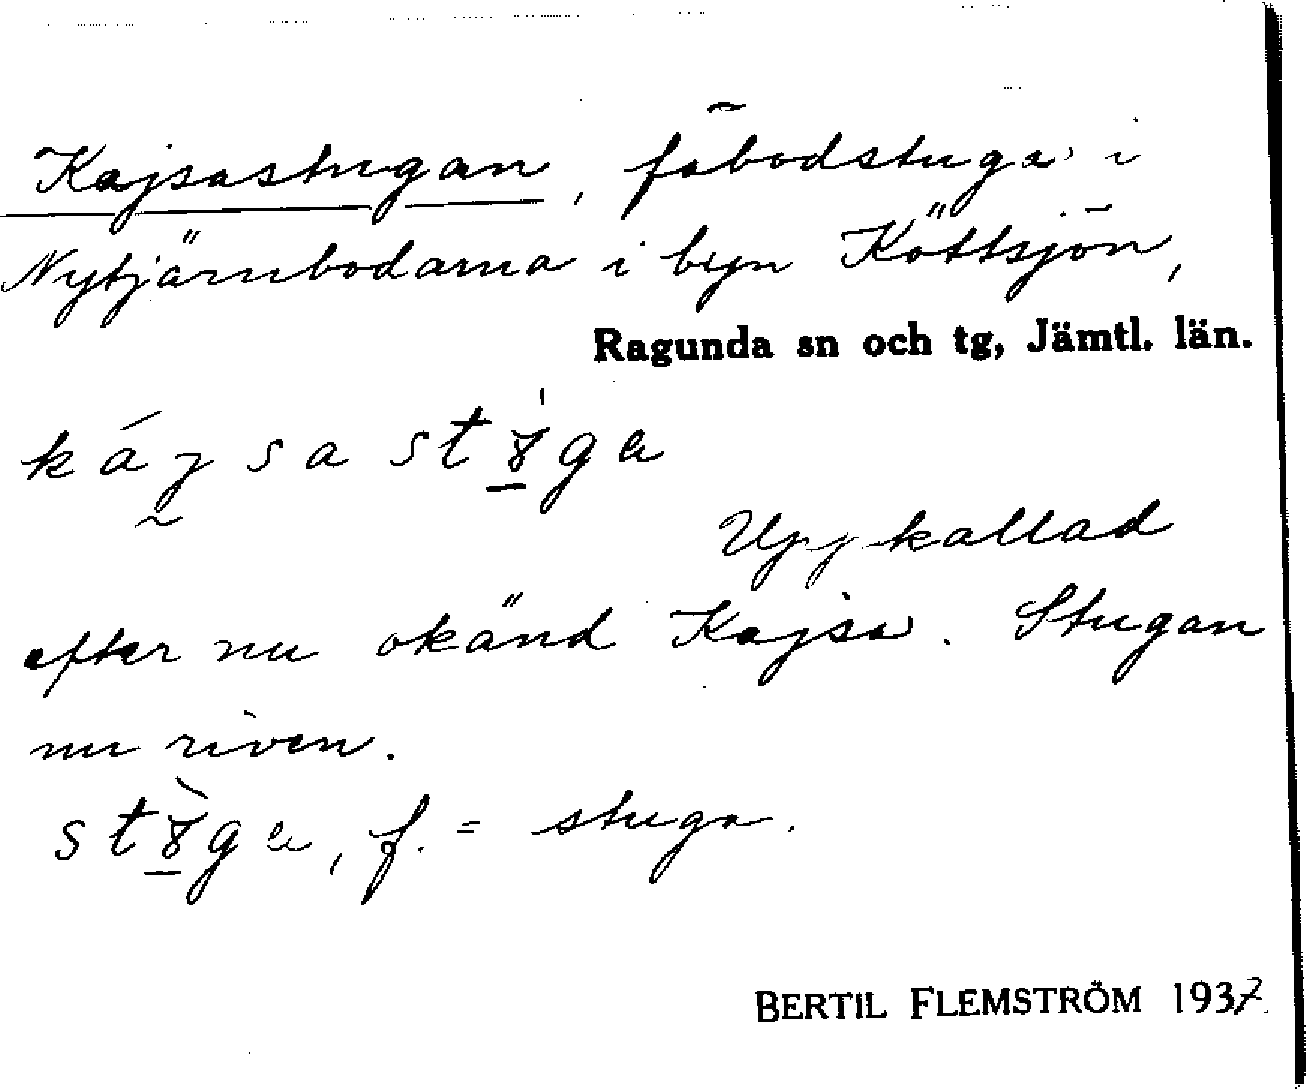 Kajsastugan, fäbodstuga i
Nytjärnbodarna i byn Köttsjön,
Ragunda sn och tg, Jämtl. län.
Uppkallad
efter nu okänd Kajsa. Stugan
nu riven.
f. = stuga.
BERTIL FLEMSTRÖM 1937